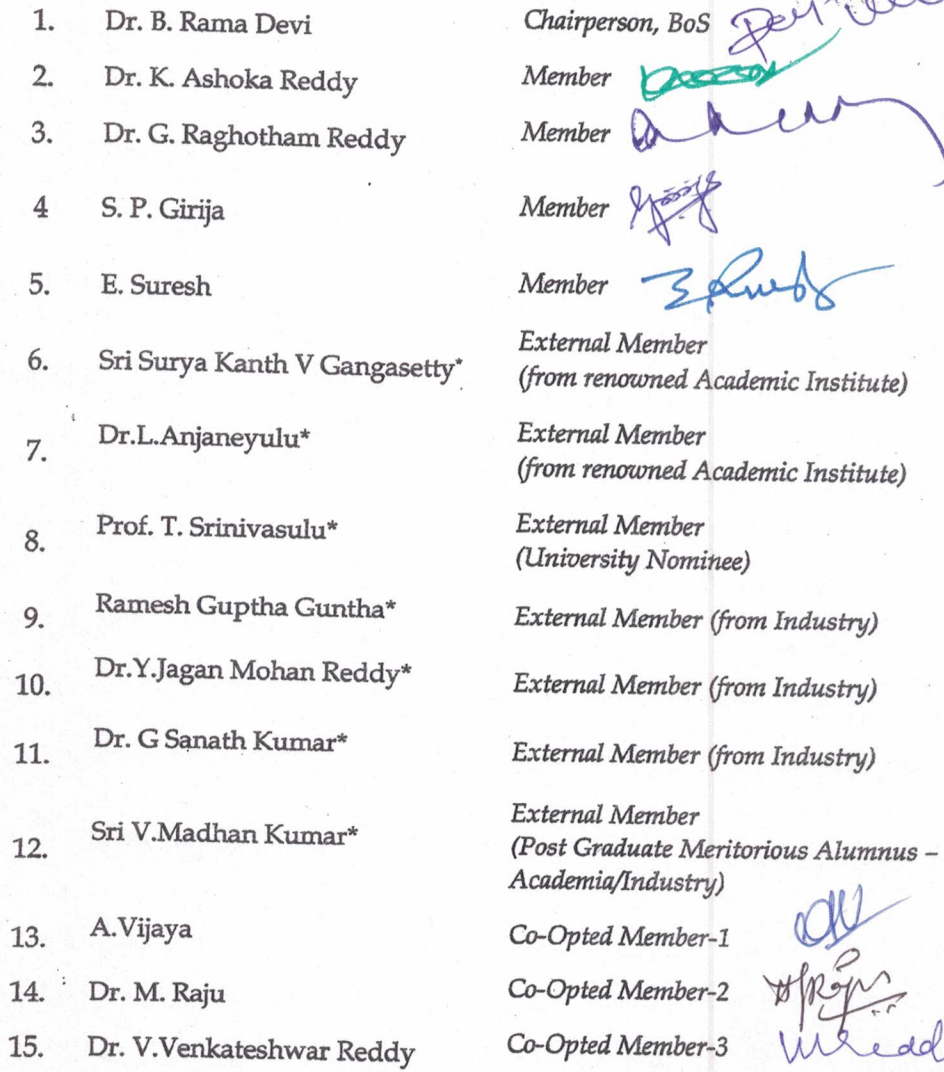 1. Dr. B. Rama Devi Chairperson, BoS
2. Dr. K. Ashoka Reddy Member
3. Dr. G. Raghotham Reddy Member
4 S. P. Girija Member
5. E. Suresh Member
6. Sri Surya Kanth V Gangasetty* External Member
(from renowned Academic Institute)
7. Dr.L.Anjaneyulu* External Member
(from renowned Academic Institute)
8. Prof. T. Srinivasulu* External Member
(University Nominee)
9. Ramesh Guptha Guntha* External Member (from Industry)
10. Dr.Y.Jagan Mohan Reddy* External Member (from Industry)
11. Dr. G Sanath Kumar* External Member (from Industry)
12. Sri V.Madhan Kumar* External Member
(Post Graduate Meritorious Alumnus –
Academia/Industry)
13. A.Vijaya Co-Opted Member-1
14. Dr. M. Raju Co-Opted Member-2
15. Dr. V.Venkateshwar Reddy Co-Opted Member-3